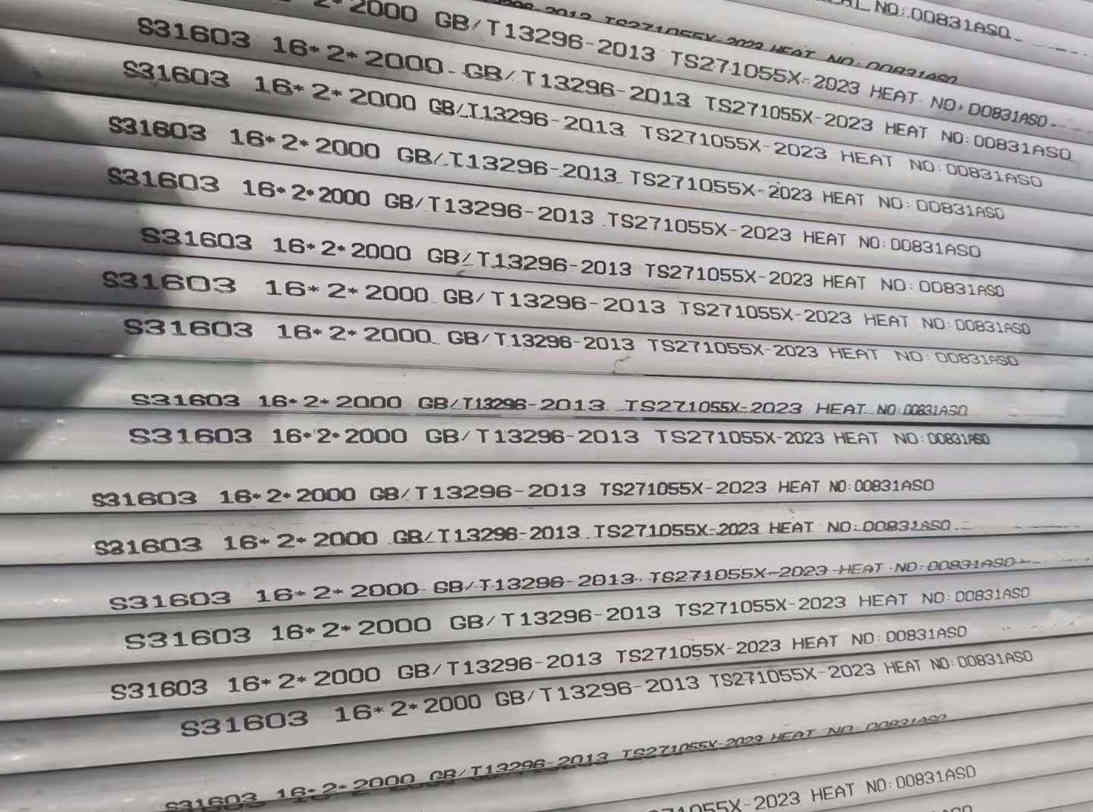 NO:00831ASO
2013 TS271055X-2023 HEAT NO:00831ASO
2*2000 GB/T13296-2013 TS271055X-2023 HEAT NO:00831ASO
S31603 16*2*2000 GB/T13296-2013 TS271055X-2023 HEAT NO:00831ASO
S31603 16*2*2000 GB/T13296-2013 TS271055X-2023 HEAT NO:00831ASO
S31603 16*2*2000 GB/T13296-2013 TS271055X-2023 HEAT NO:00831ASO
S31603 16*2*2000 GB/T13296-2013 TS271055X-2023 HEAT NO:00831ASO
S31603 16*2*2000 GB/T13296-2013 TS271055X-2023 HEAT NO:00831ASO
S31603 16*2*2000 GB/T13296-2013 TS271055X-2023 HEAT NO:00831ASO
S31603 16*2*2000 GB/T13296-2013 TS271055X-2023 HEAT NO:00831ASO
S31603 16*2*2000 GB/T13296-2013 TS271055X-2023 HEAT NO:00831ASO
S31603 16*2*2000 GB/T13296-2013 TS271055X-2023 HEAT NO:00831ASO
S31603 16*2*2000 GB/T13296-2013 TS271055X-2023 HEAT NO:00831ASO
S31603 16*2*2000 GB/T13296-2013 TS271055X-2023 HEAT NO:00831ASO
S31603 16*2*2000 GB/T13296-2013 TS271055X-2023 HEAT NO:00831ASO
S31603 16*2*2000 GB/T13296-2013 TS271055X-2023 HEAT NO:00831ASO
S31603 16*2*2000 GB/T13296-2013 TS271055X-2023 HEAT NO:00831ASO
S31603 16*2*2000 GB/T13296-2013 TS271055X-2023 HEAT NO:00831ASO
S31603 16*2*2000 GB/T13296-2013 TS271055X-2023 HEAT NO:00831ASO
1055X-2023 HEAT NO:00831ASO